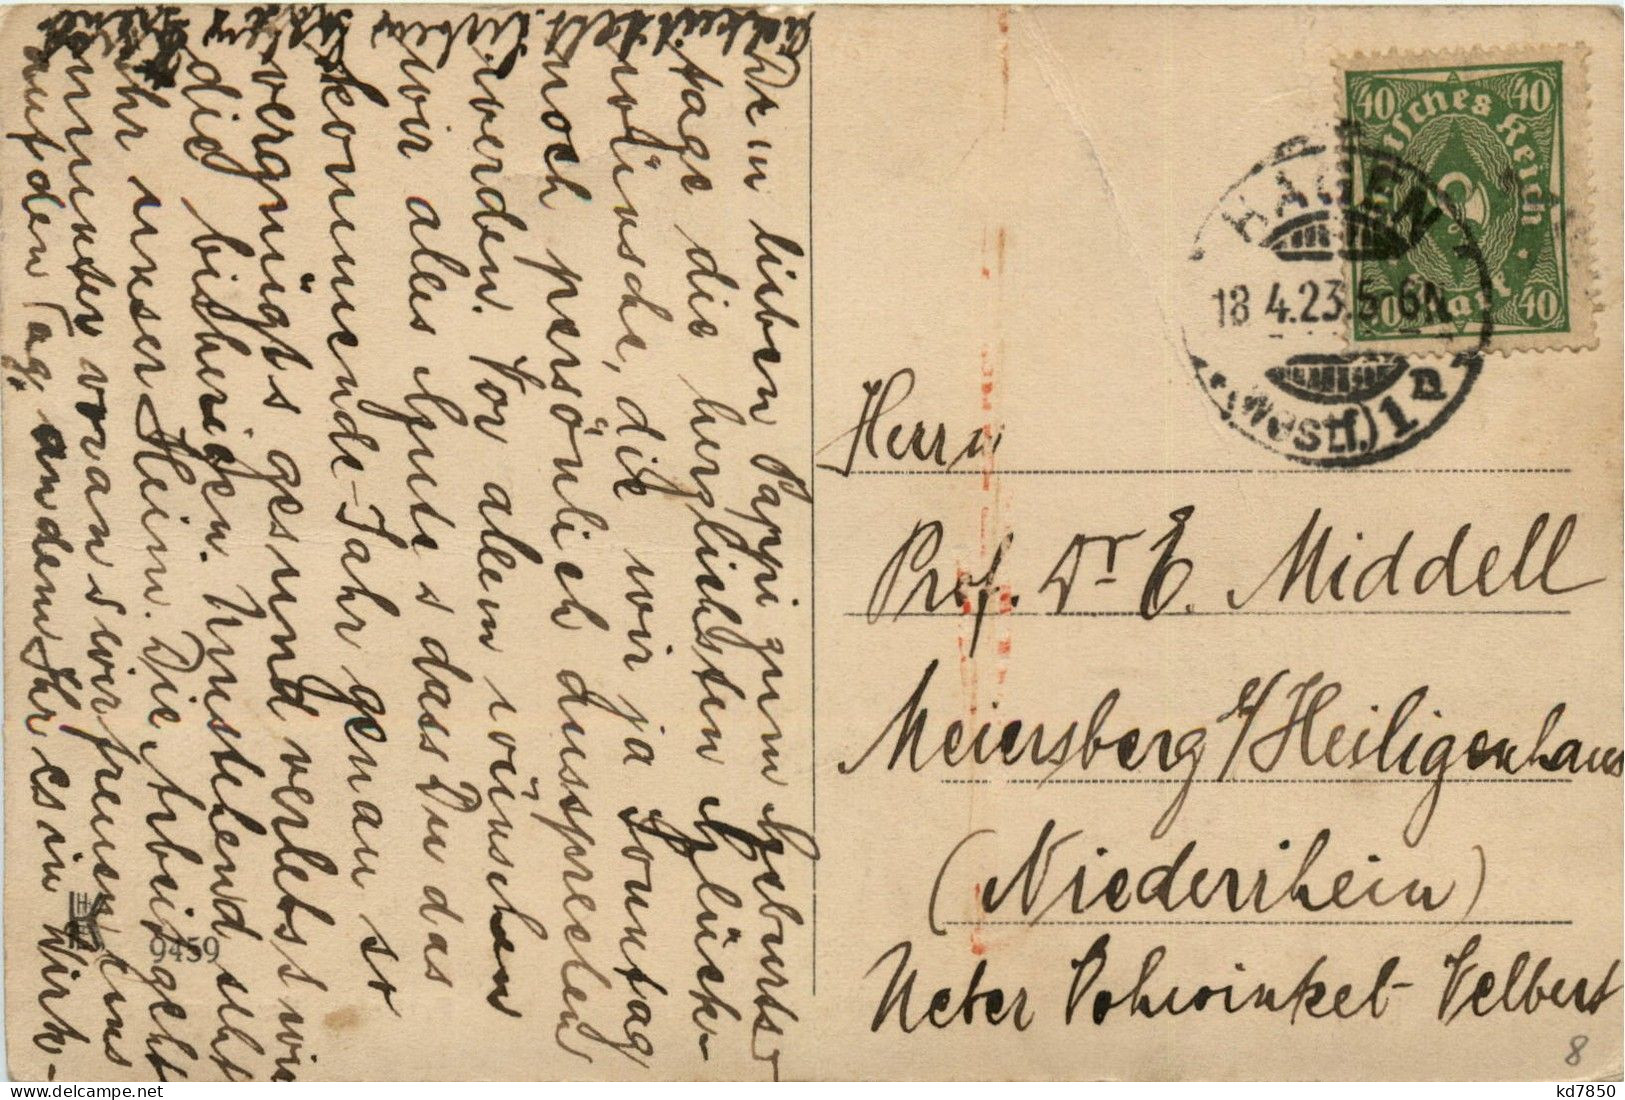 Dem lieben Pappi zum Geburts-
tage die herzlichsten Glück-
wünsche, die wir ja Sonntag
noch persönlich aussprechen
werden. Vor alem wünschen
wir ales Gute s dass Du das
kommende Jahr genau so
vergnügt s gesund verlebst wie
die bisherigen. Umstehend seht
Ihr unser Heim. Die Arbeit geht
munter voran s wir freuen uns
auf den Tag, an dem Ihr es in Wirk-
lichkeit seht.
Deutsches Reich
40 40
40 Mark 40
HAGEN
18.4.23.5-6N
(Westf.) 1 n
Herrn
Prof. Dr E. Middell
Meiersberg b/Heiligenhaus
(Niederrhein)
Ueber Vohwinkel-Velbert
9459
8
kd7850